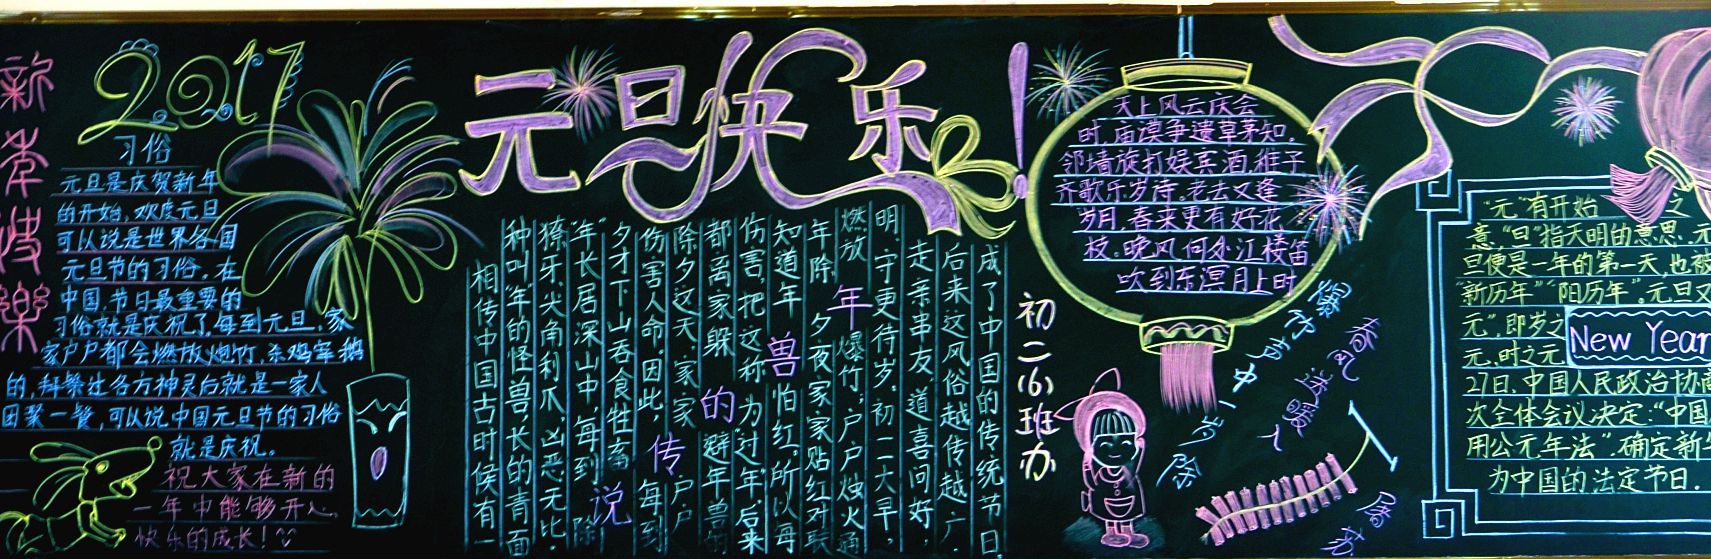 新年快樂
2017
习俗
元旦是庆贺新年
的开始,欢度元旦
可以说是世界各国
元旦节的习俗。在
中国,节日最重要的
习俗就是庆祝了,每到元旦,家
家户户都会燃放炮竹,杀鸡宰鹅
的,拜祭过各方神灵后就是一家人
团聚一餐,可以说中国元旦节的习俗
就是庆祝。
祝大家在新的
一年中能够开心,
快乐的成长!
元旦快乐!
年兽的传说
相传中国古时候有一
种叫“年”的怪兽,长的青面
獠牙,尖角利爪,凶恶无比,
“年”长居深山中,每到除
夕才下山吞食牲畜
伤害人命,因此,每到
除夕这天,家家户户
都离家躲避年兽的
伤害,把这称为“过年”,后来
知道年怕红,所以每
年除夕夜家家贴红对联
燃放爆竹,户户烛火通
明,守更待岁。初二大早,
走亲串友,道喜问好,
后来这风俗越传越广,
成了中国的传统节日
初二(6)班办
天上风云庆会
时,庙谟争遗草茅知。
邻墙旋打娱宾酒,稚子
齐歌乐岁诗。老去又逢
岁月,春来更有好花
枝。晚风何处江楼笛
吹到东溟月上时
爆竹声中一岁除
春风送暖入
屠苏
“元”有开始之
意,“旦”指天明的意思。元
旦便是一年的第一天,也被
“新历年”“阳历年”。元旦又
元”,即岁之
元,时之元
New Year
27日,中国人民政治协商
次全体会议决定:“中国
用公元年法”,确定新年
为中国的法定节日.